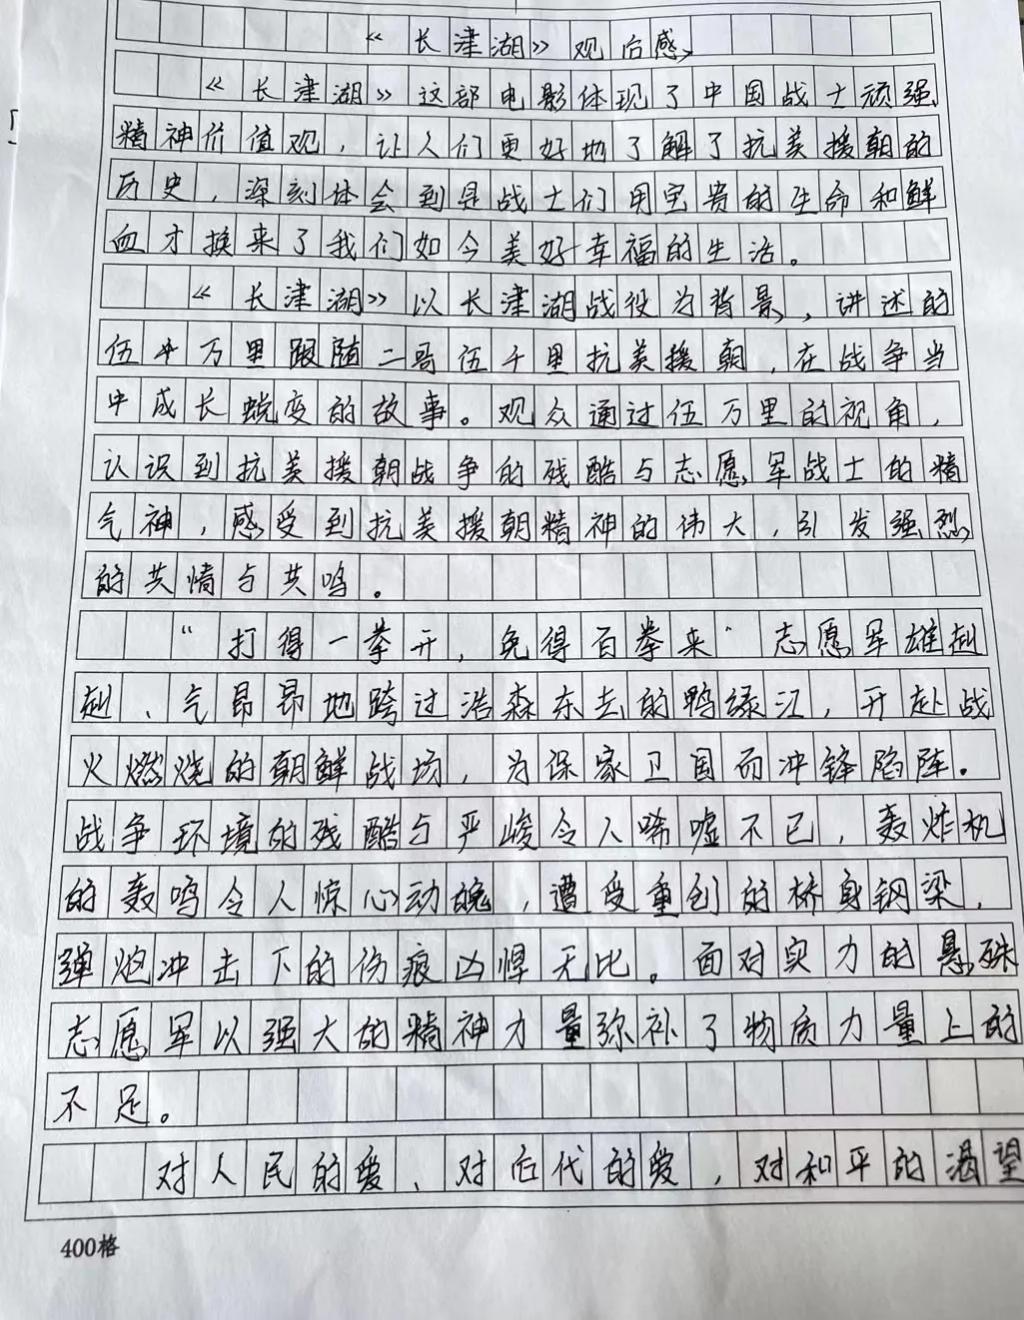 《长津湖》观后感
《长津湖》这部电影体现了中国战士顽强
精神价值观，让人们更好地了解了抗美援朝的
历史，深刻体会到是战士们用宝贵的生命和鲜
血才换来了我们如今美好幸福的生活。
《长津湖》以长津湖战役为背景，讲述的
伍万里跟随二哥伍千里抗美援朝，在战争当
中成长蜕变的故事。观众通过伍万里的视角，
认识到抗美援朝战争的残酷与志愿军战士的精
气神，感受到抗美援朝精神的伟大，引发强烈
的共情与共鸣。
“打得一拳开，免得百拳来”志愿军雄赳
赳、气昂昂地跨过浩森东去的鸭绿江，开赴战
火燃烧的朝鲜战场，为保家卫国而冲锋陷阵。
战争环境的残酷与严峻令人唏嘘不已，轰炸机
的轰鸣令人惊心动魄，遭受重创的桥身钢梁，
弹炮冲击下的伤痕凶悍无比。面对实力的悬殊
志愿军以强大的精神力量弥补了物质力量上的
不足。
对人民的爱、对后代的爱，对和平的渴望
400格